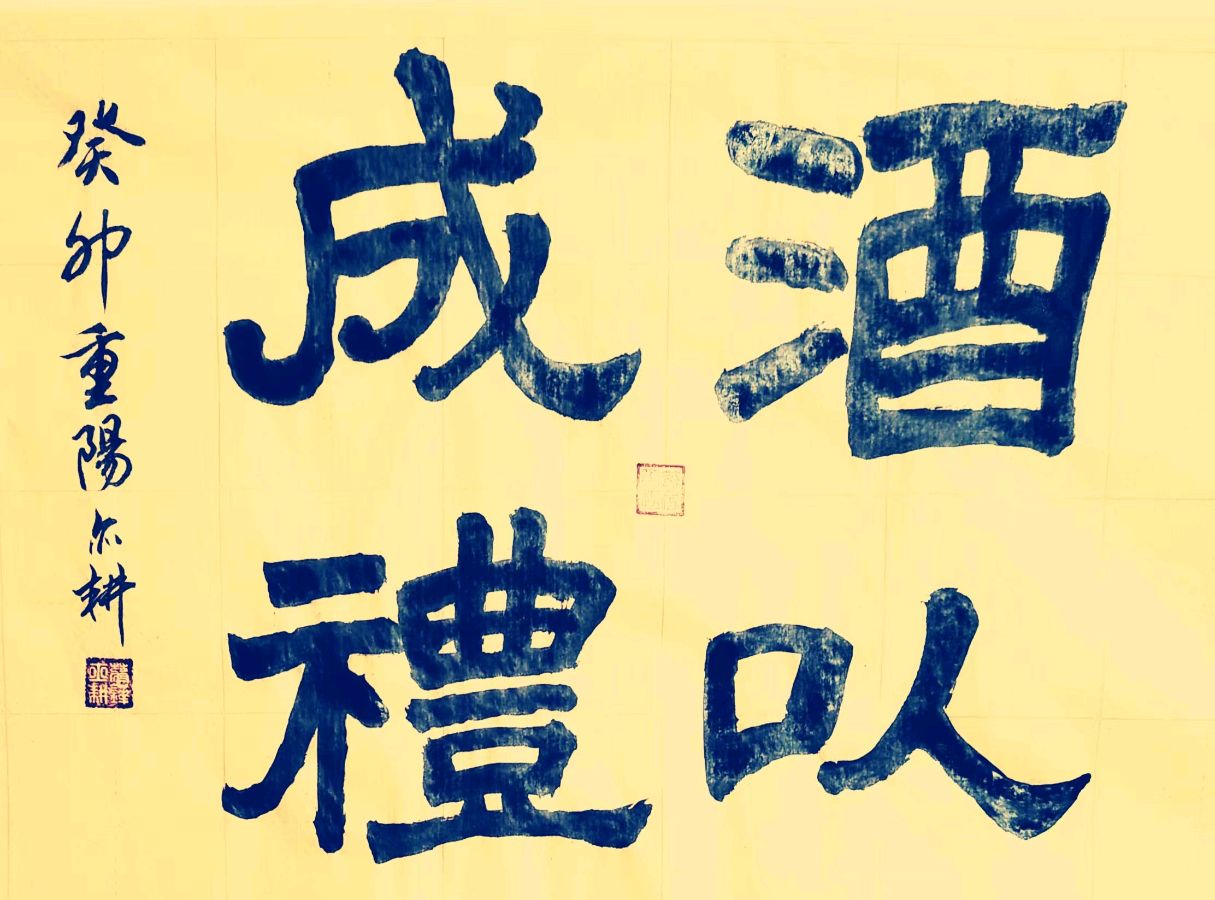 酒㕥
成禮
癸卯重陽尒耕